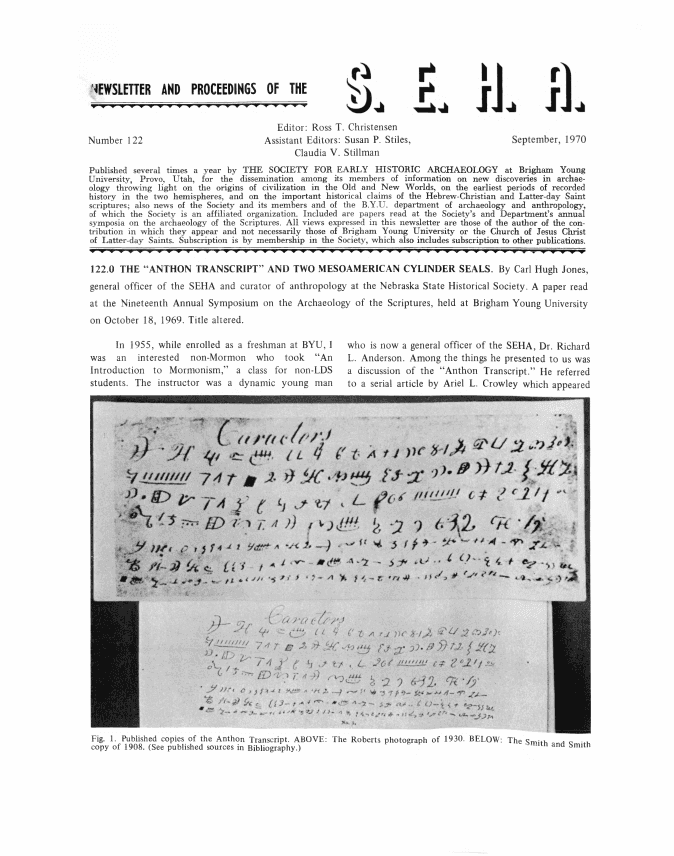 NEWSLETTER AND PROCEEDINGS OF THE
S. E. H. A.
Editor: Ross T. Christensen
Number 122
Assistant Editors: Susan P. Stiles,
September, 1970
Claudia V. Stillman
Published several times a year by THE SOCIETY FOR EARLY HISTORIC ARCHAEOLOGY at Brigham Young
University, Provo, Utah, for the dissemination among its members of information on new discoveries in archae-
ology throwing light on the origins of civilization in the Old and New Worlds, on the earliest periods of recorded
history in the two hemispheres, and on the important historical claims of the Hebrew-Christian and Latter-day Saint
scriptures; also news of the Society and its members and of the B.Y.U. department of archaeology and anthropology,
of which the Society is an affiliated organization. Included are papers read at the Society's and Department's annual
symposia on the archaeology of the Scriptures. All views expressed in this newsletter are those of the author of the con-
tribution in which they appear and not necessarily those of Brigham Young University or the Church of Jesus Christ
of Latter-day Saints. Subscription is by membership in the Society, which also includes subscription to other publications.
122.0 THE “ANTHON TRANSCRIPT” AND TWO MESOAMERICAN CYLINDER SEALS. By Carl Hugh Jones,
general officer of the SEHA and curator of anthropology at the Nebraska State Historical Society. A paper read
at the Nineteenth Annual Symposium on the Archaeology of the Scriptures, held at Brigham Young University
on October 18, 1969. Title altered.
In 1955, while enrolled as a freshman at BYU, I
was an interested non-Mormon who took “An
Introduction to Mormonism,” a class for non-LDS
students. The instructor was a dynamic young man
who is now a general officer of the SEHA, Dr. Richard
L. Anderson. Among the things he presented to us was
a discussion of the “Anthon Transcript.” He referred
to a serial article by Ariel L. Crowley which appeared
Caracters
Caracters
Fig. 1. Published copies of the Anthon Transcript. ABOVE: The Roberts photograph of 1930. BELOW: The Smith and Smith
copy of 1908. (See published sources in Bibliography.)